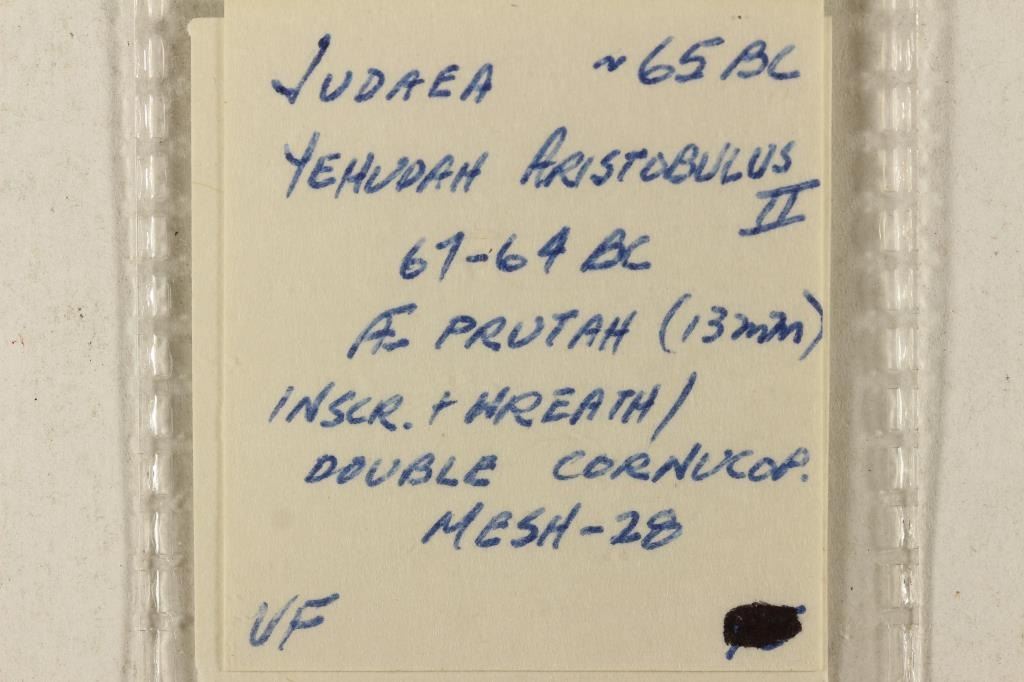 JUDAEA ~65 BC
YEHUDAH ARISTOBULUS
II
67-64 BC
Æ PRUTAH (13mm)
INSCR. + WREATH/
DOUBLE CORNUCOP.
MESH-28
VF